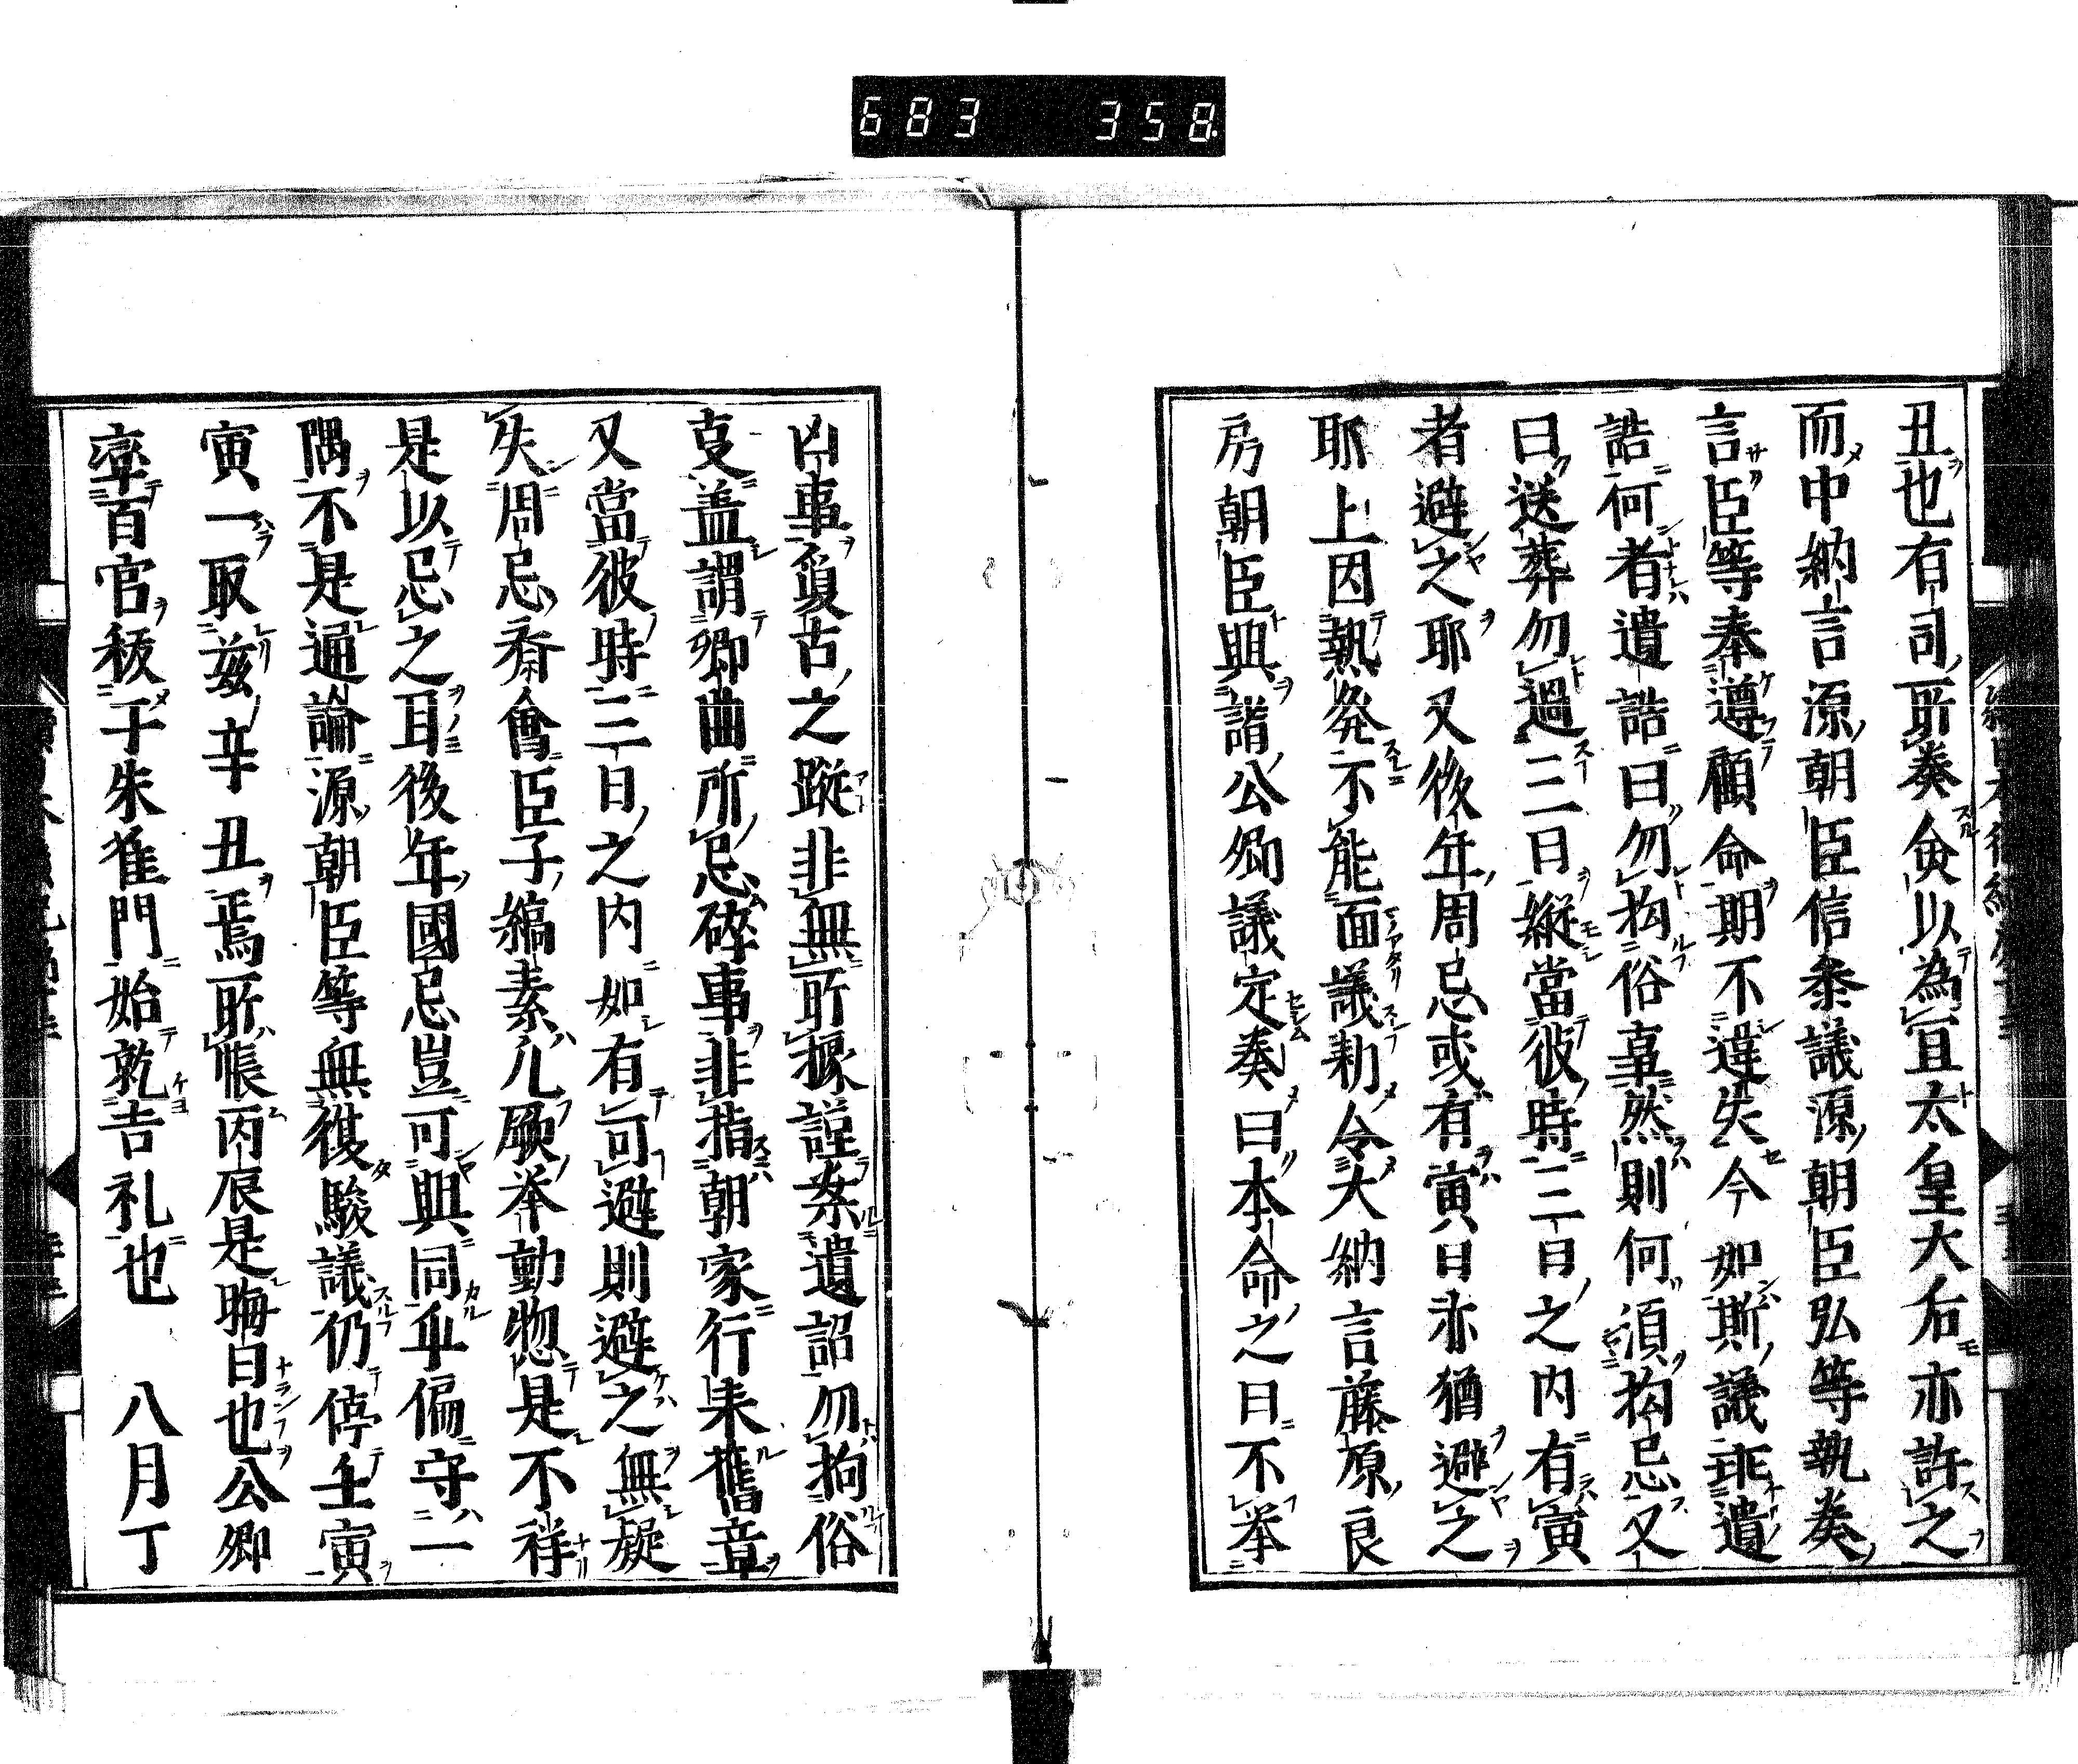 683 358
丑也有司所奏僉以為宜太皇大后亦許之
而中納言源朝臣信叅議源朝臣弘等執奏
言臣等奉遵顧命期不違失今如斯議乖遺
誥何者遺誥曰勿拘俗事然則何須拘忌又
曰送葬勿過三日縦當彼時三日之内有寅
者避之耶又後年周忌或有寅日亦猶避之
耶上因熱発不能面議勅令大納言藤原良
房朝臣與諸公卿議定奏曰本命之日不挙
凶事質古之蹤非無所據謹案遺詔勿拘俗
事盖謂卿曲所忌碎事非指朝家行来舊章
又當彼時三日之内如有可避則避之無疑
矣周忌斎會臣子縞素凡厥挙動惣是不祥
是以忌之耳後年國忌豈可與同乎偏守一
隅不是通論源朝臣等無復駿議仍停壬寅
寅一取兹辛丑焉所悵丙辰是晦日也公卿
率百官祓于朱雀門始乾吉礼也 八月丁